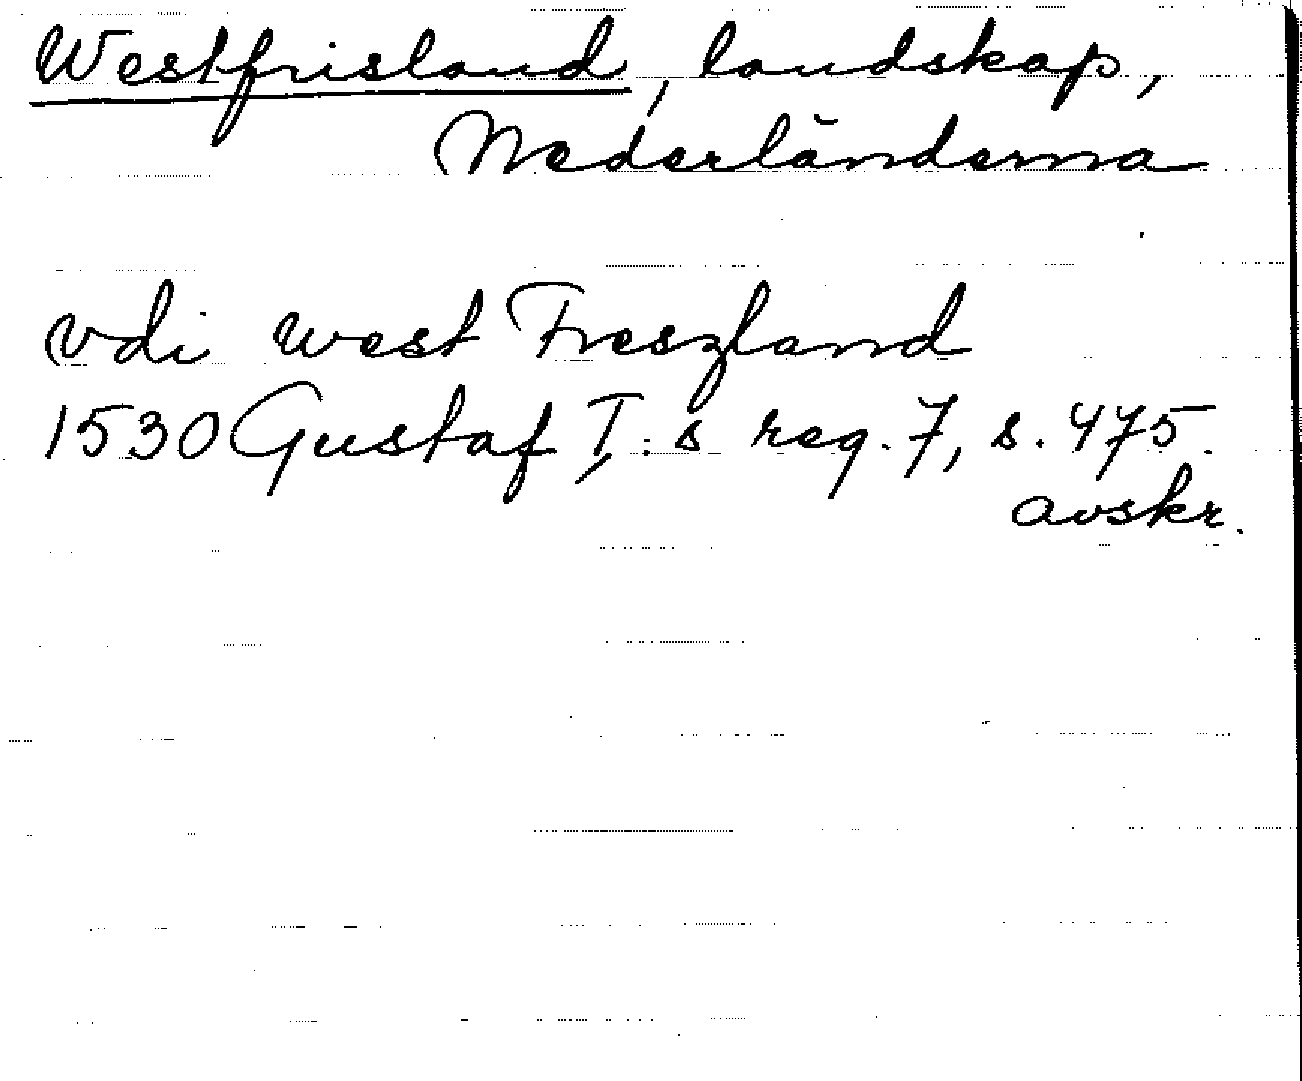 Westfrisland, landskap,
Nederländerna
vdi west Freszland
1530 Gustaf I:s reg. 7, s. 475.
avskr.